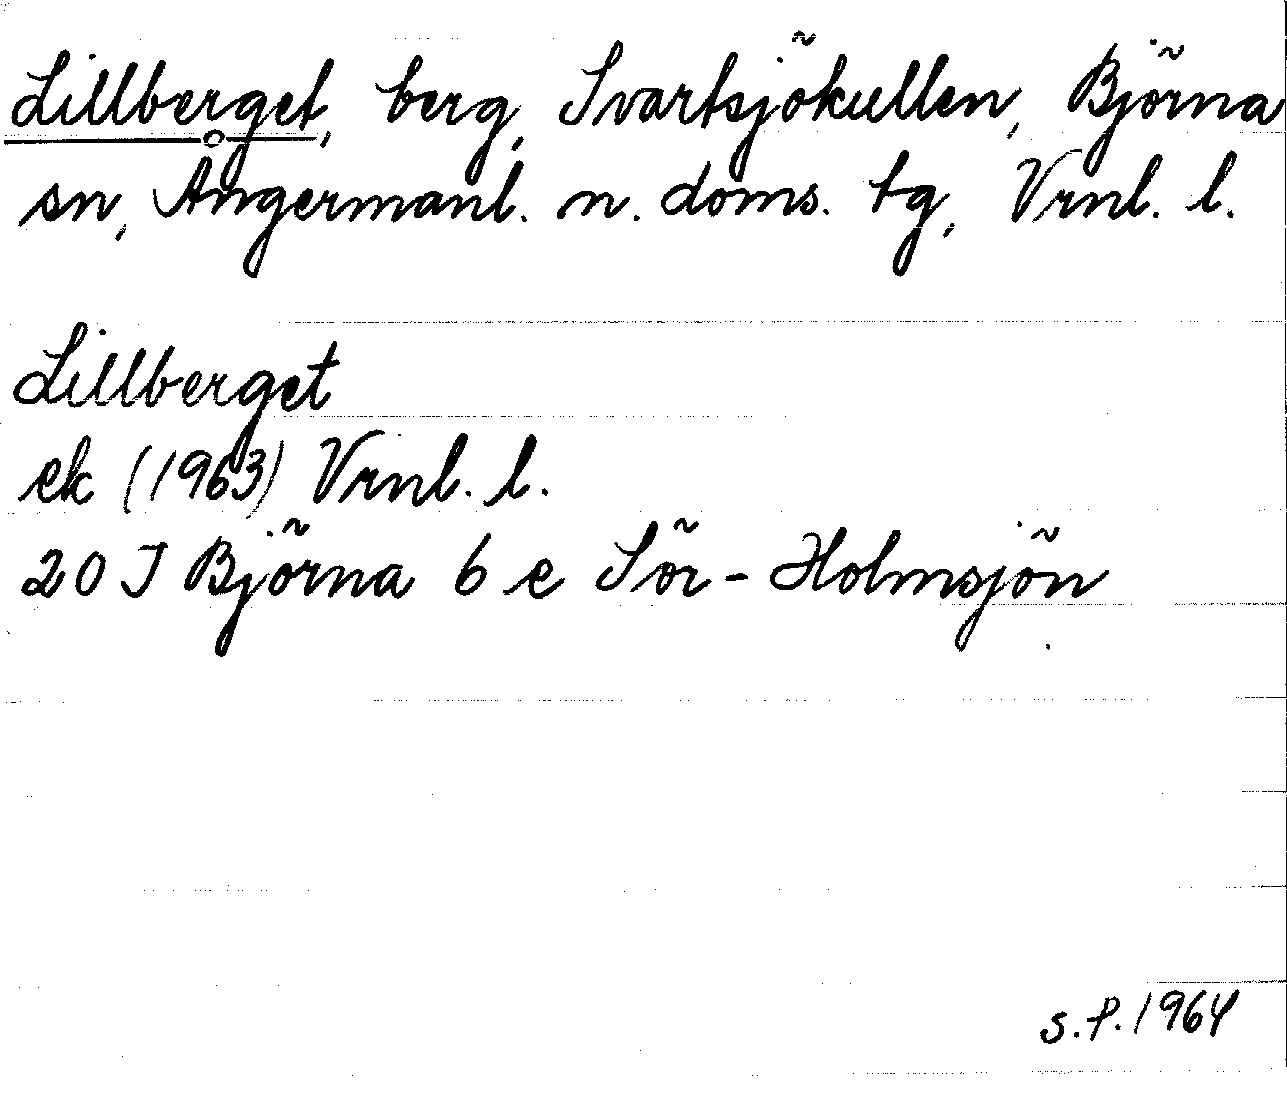 Lillberget, berg, Svartsjökullen, Björna
sn, Ångermanl. n. doms. tg, Vrnl. l.
Lillberget
ek (1963) Vrnl. l.
20 J Björna 6 e Sör-Holmsjön
s.P. 1964